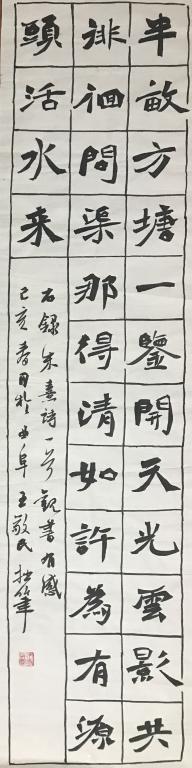 半畝方塘一鑒開天光雲影共
徘徊問渠那得清如許為有源
頭活水来
右錄朱熹詩一首觀書有感
己亥春月於曲阜王敬民拙筆